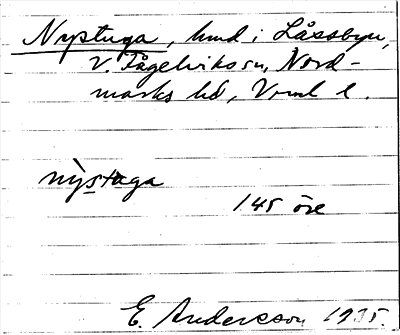 Nystuga, hmd i Låssbyn,
V. Fågelviks sn, Nord-
marks hd, Vrml l.
nỳstùga
145 öre
E. Andersson 1935.